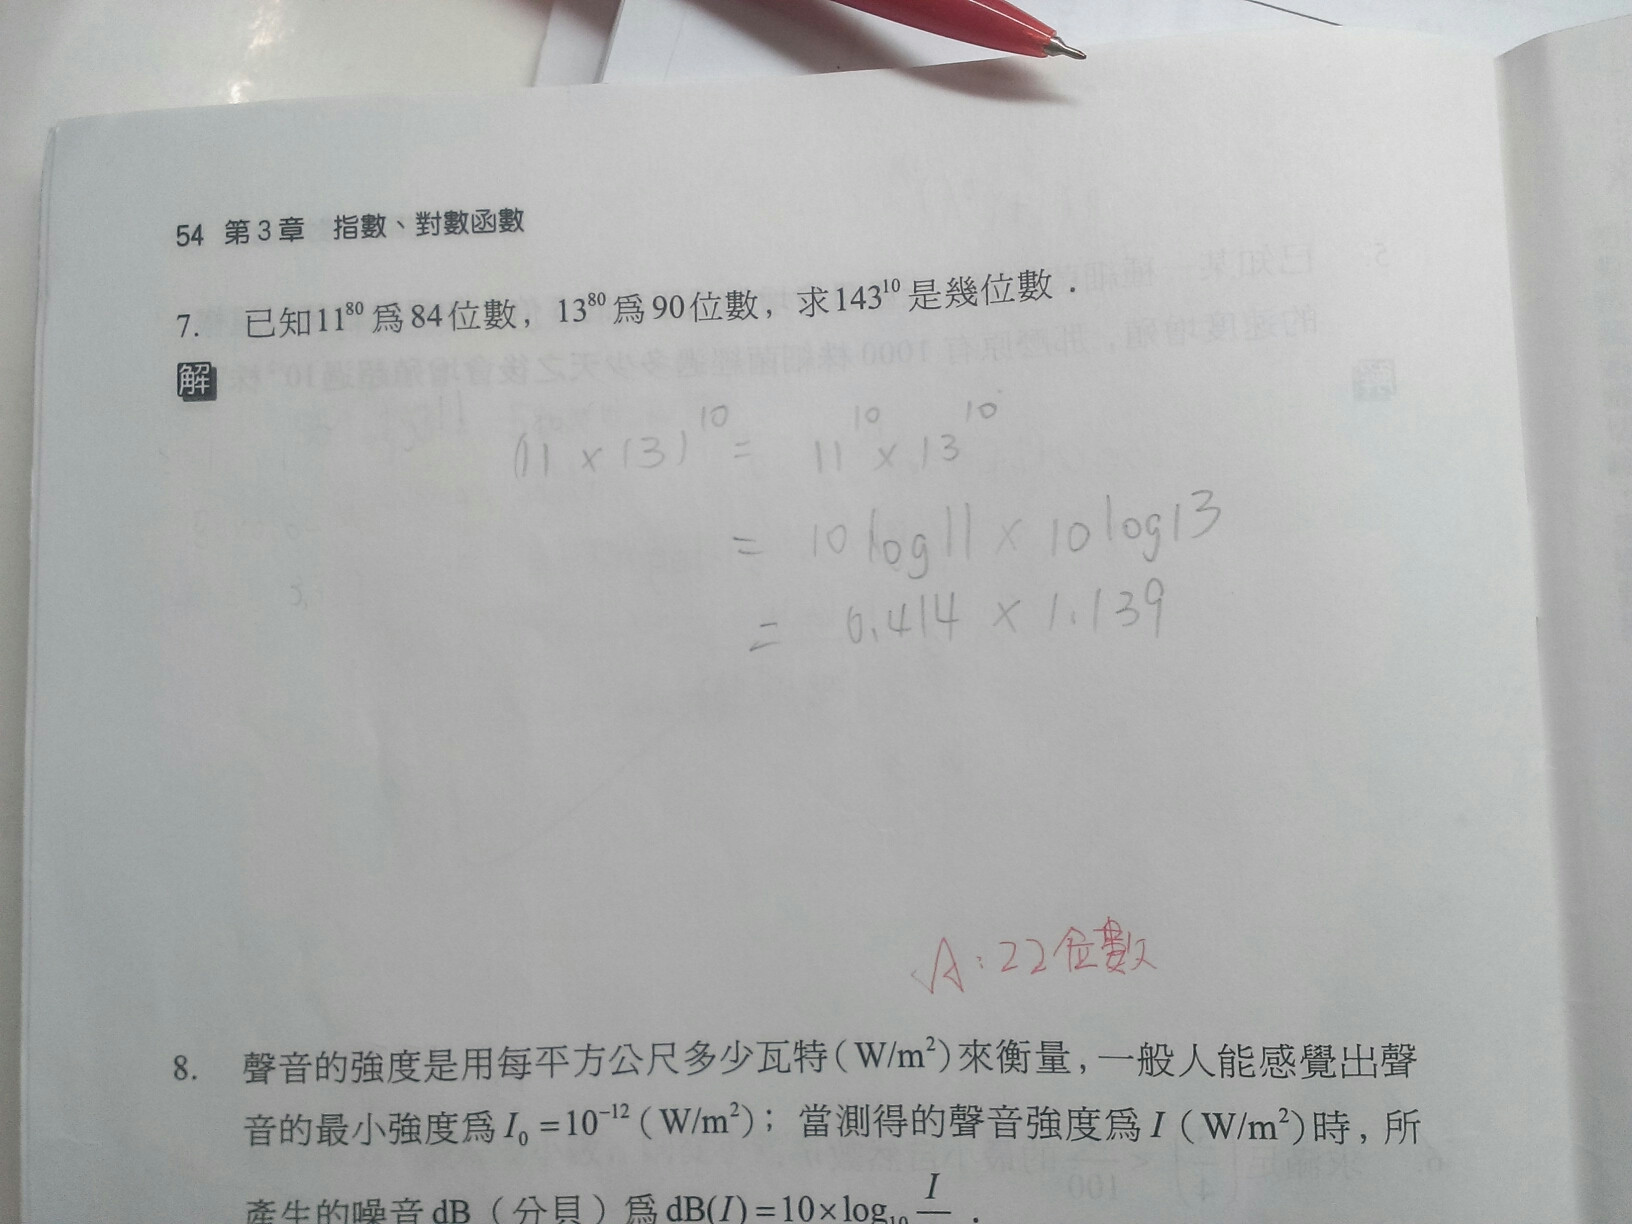 54 第3章 指數、對數函數
7. 已知11⁸⁰ 為84位數，13⁸⁰ 為90位數，求143¹⁰ 是幾位數．
解
(11 × 13)¹⁰ = 11¹⁰ × 13¹⁰
= 10 log11 × 10 log13
= 0.414 × 1.139
A：22位數
8. 聲音的強度是用每平方公尺多少瓦特（W/m²）來衡量，一般人能感覺出聲
音的最小強度為 I₀ = 10⁻¹²（W/m²）；當測得的聲音強度為 I（W/m²）時，所
產生的噪音 dB（分貝）為 dB(I) = 10×log₁₀ I